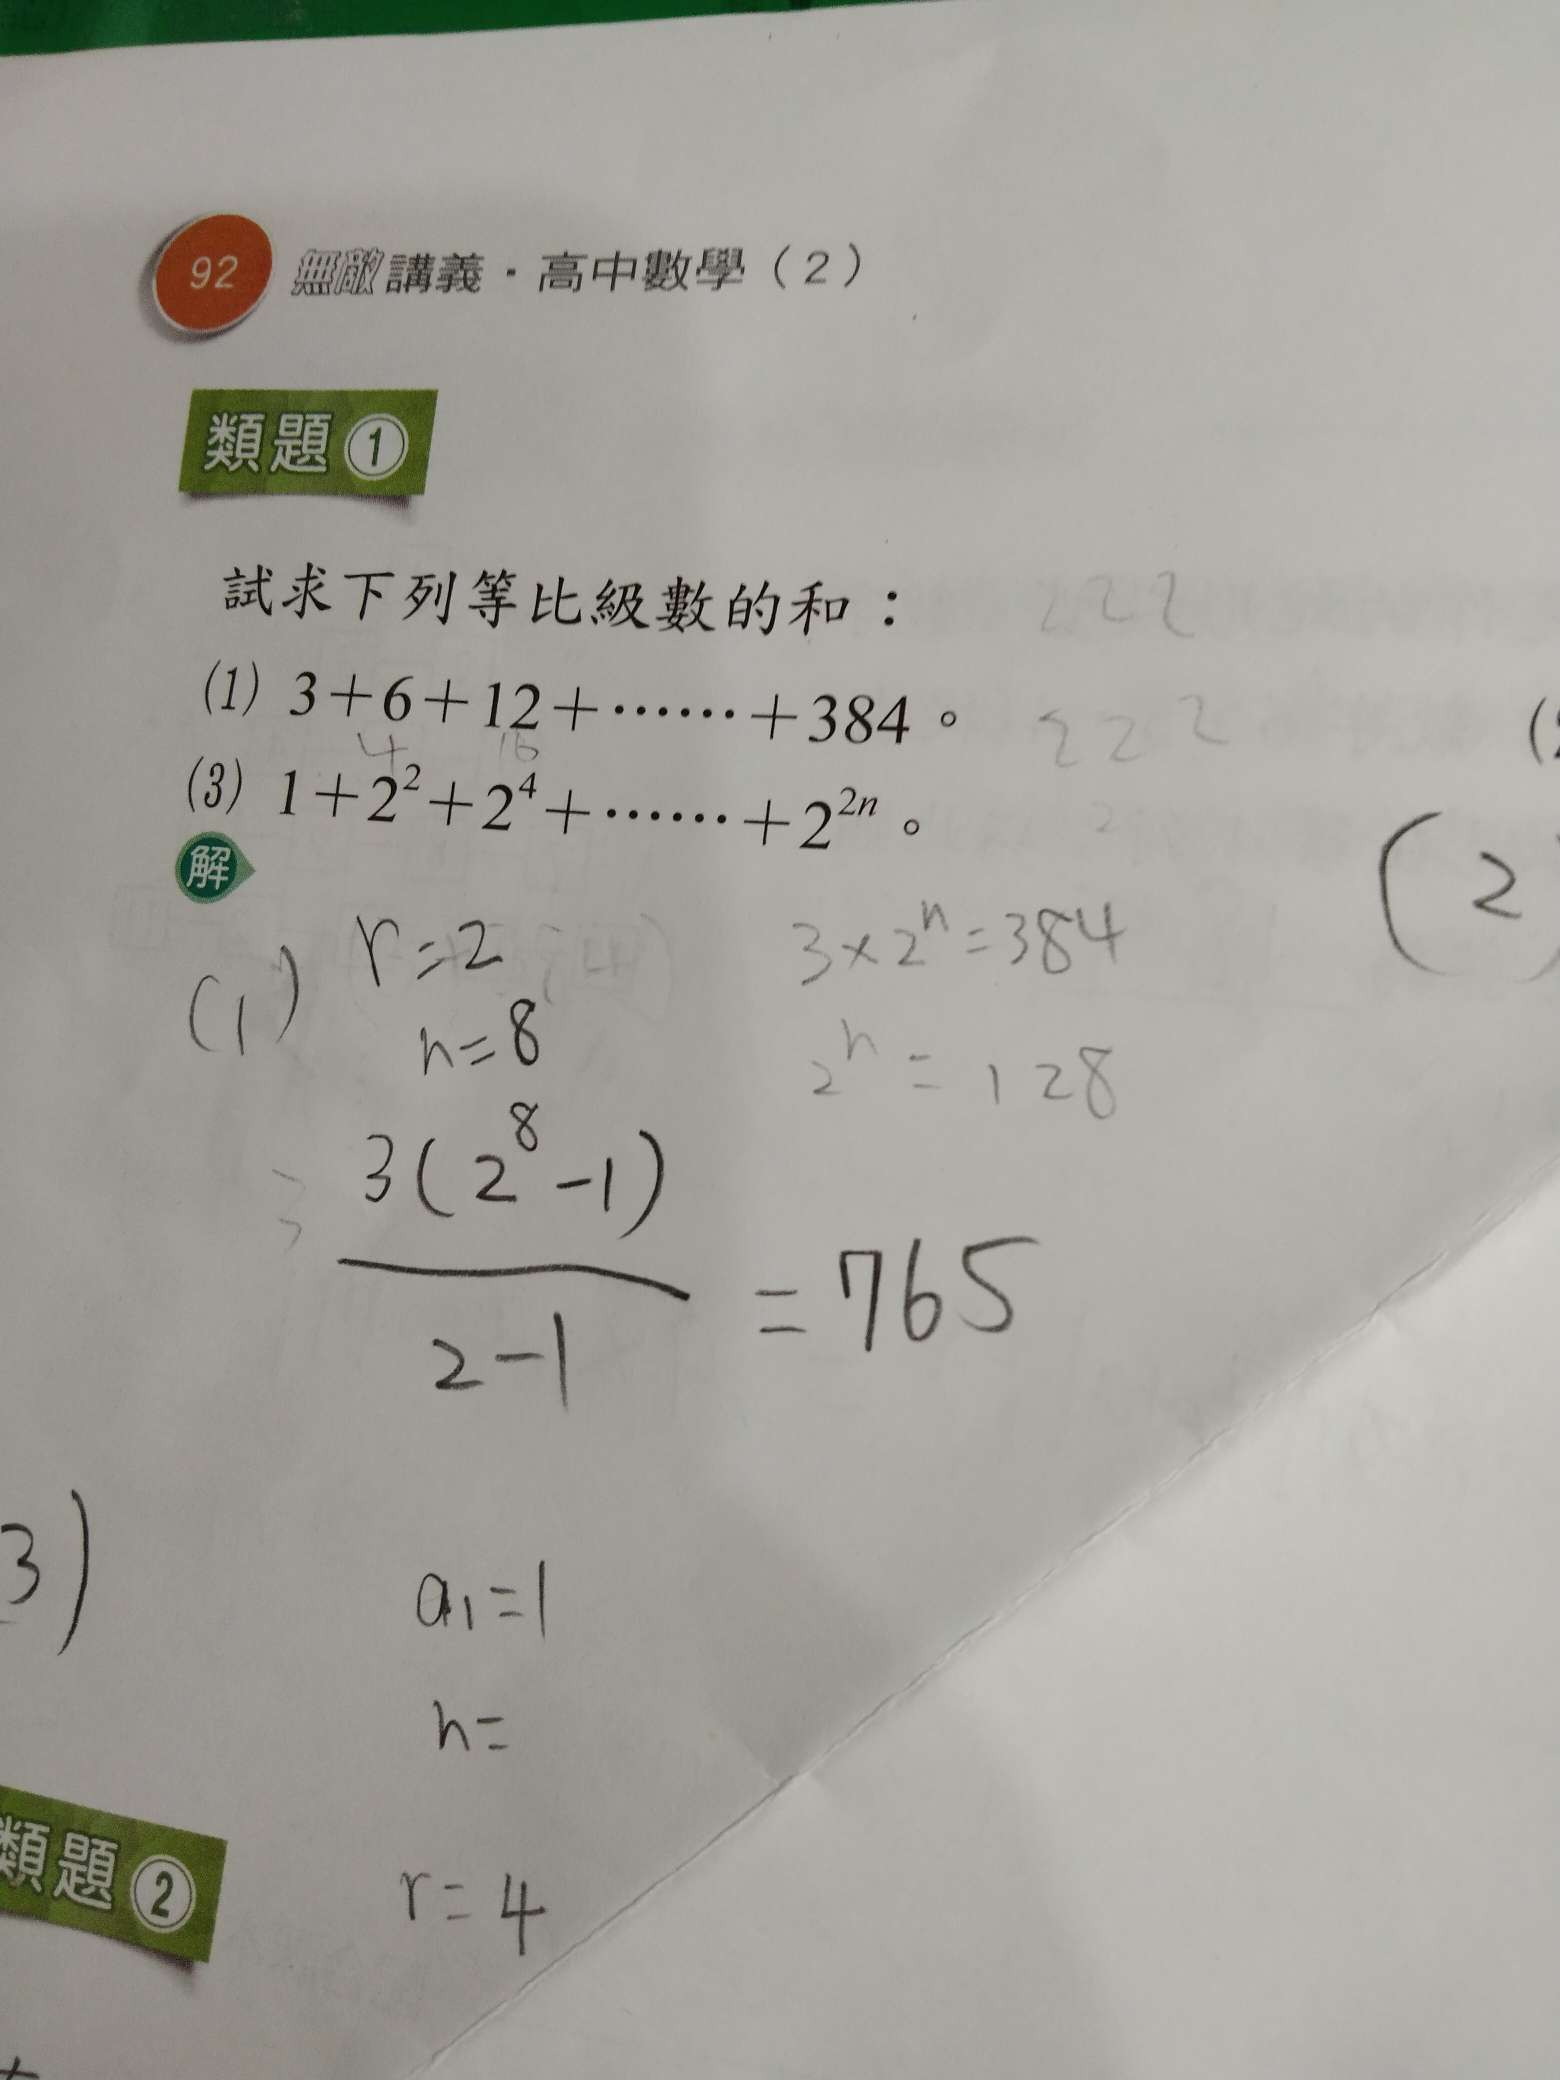 92 無敵講義・高中數學（2）
類題 1
試求下列等比級數的和：
(1) 3+6+12+……+384。
4 16
(3) 1+2²+2⁴+……+2²ⁿ。
解
(1) r=2
n=8
3×2ⁿ=384
2ⁿ=128
(2
3(2⁸-1)
2-1
=765
3)
a₁=1
n=
r=4
類題 2